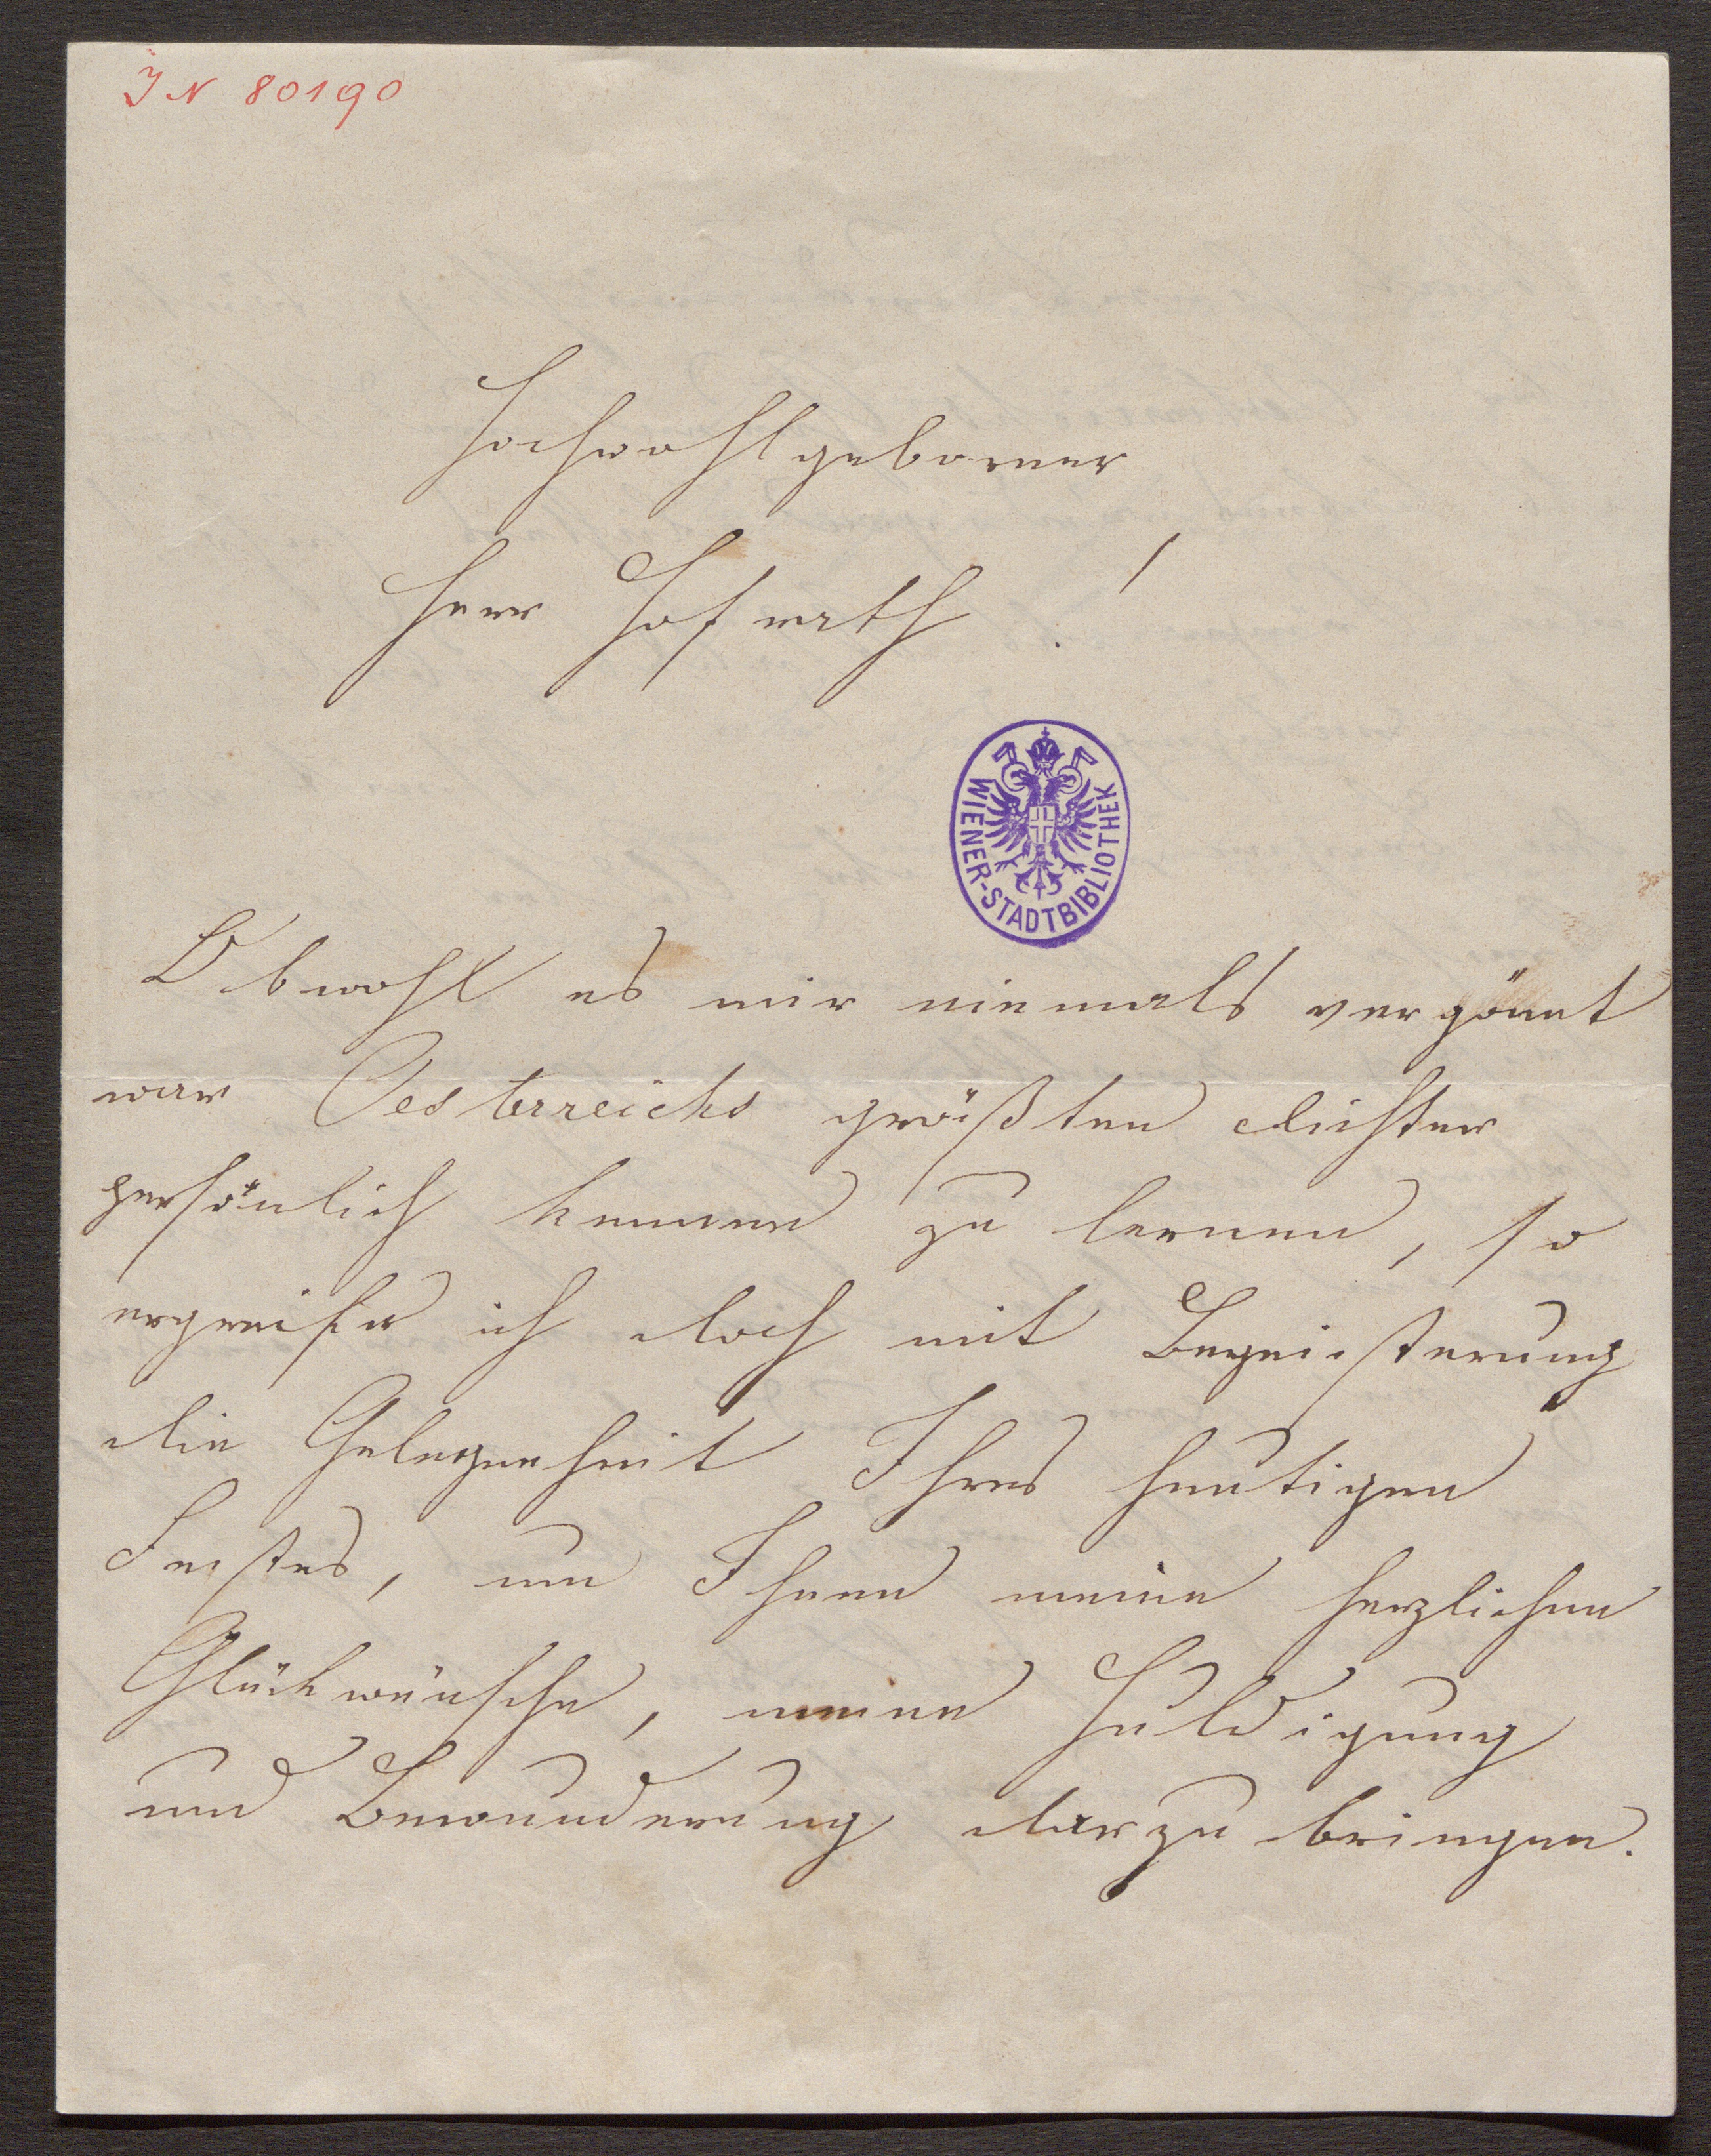 IN 80190
Hochwohlgeborner
Herr Hofrath !
WIENER-STADTBIBLIOTHEK
Obwohl es mir niemals vergönnt
war Oesterreichs größten Dichter
persönlich kennen zu lernen, so
ergreife ich doch mit Begeisterung
die Gelegenheit Ihres heutigen
Festes, um Ihnen meine herzlichen
Glückwünsche, meine Huldigung
und Bewunderung darzubringen.